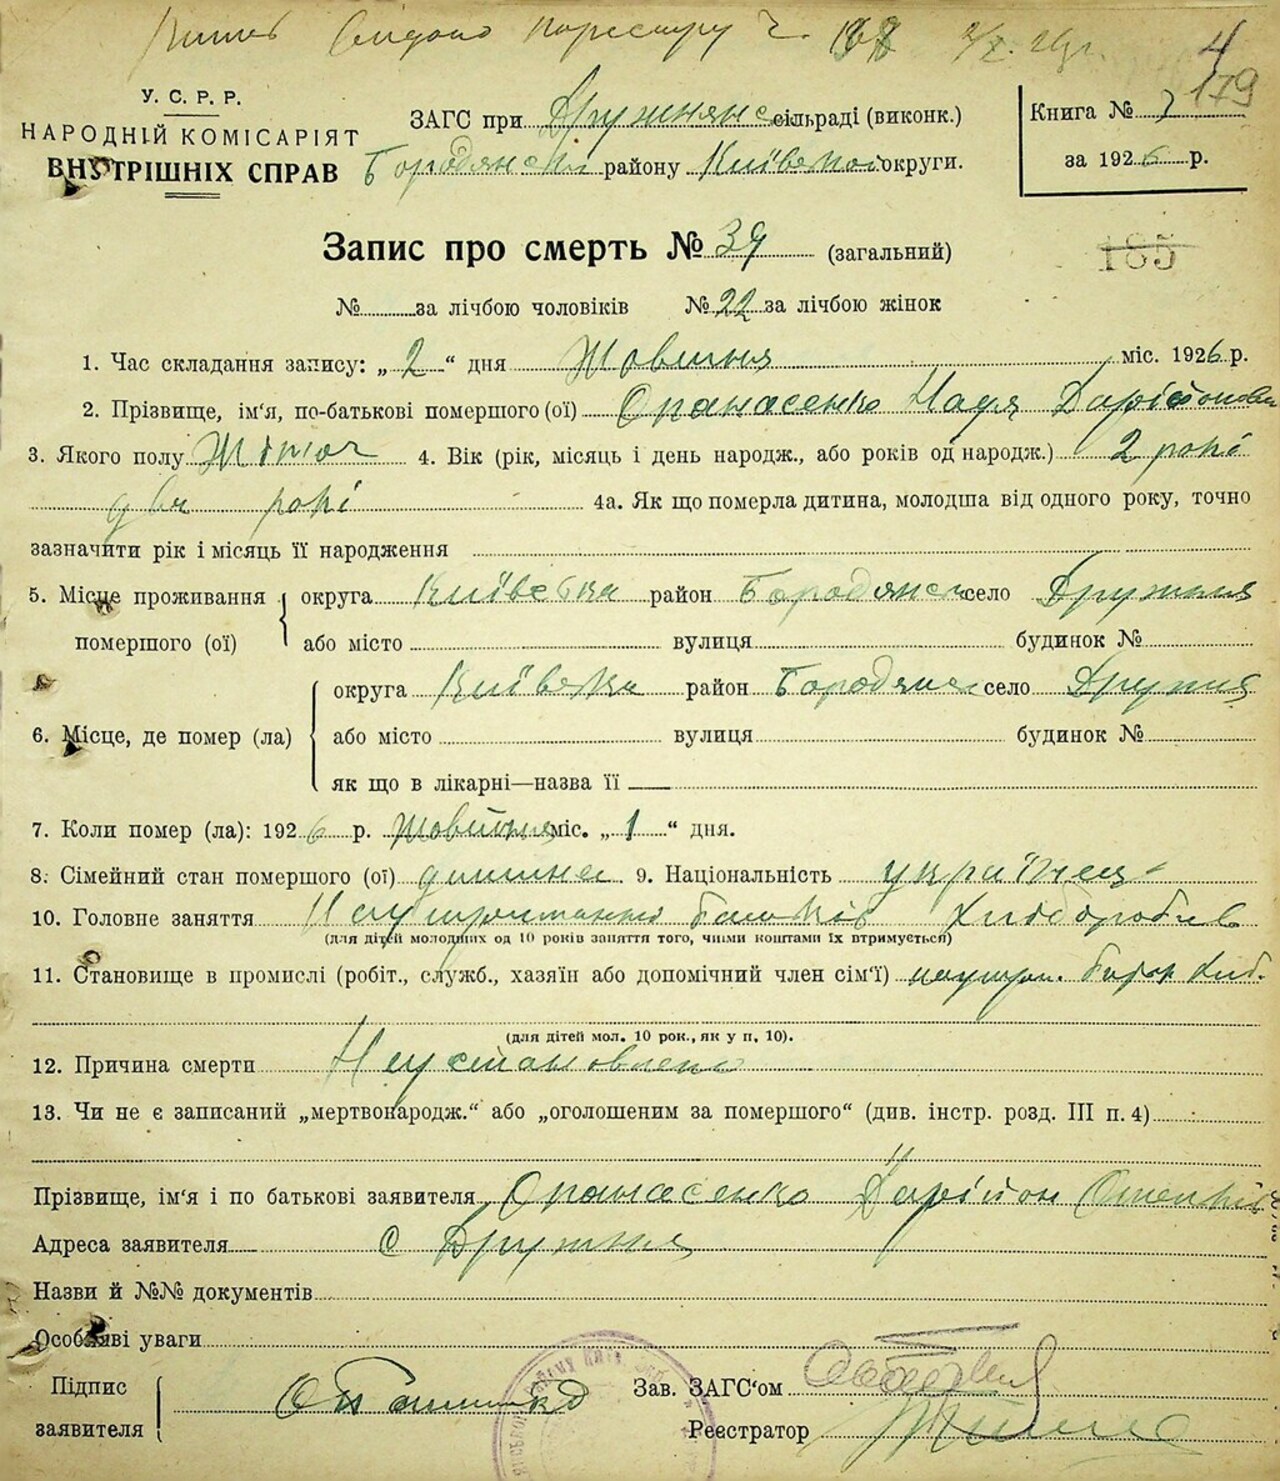 У. С. Р. Р.
НАРОДНІЙ КОМІСАРІЯТ
ВНУТРІШНІХ СПРАВ
ЗАГС при Дружнянс сільраді (виконк.)
Бородянськ району Київської округи.
Книга №
за 1926 р.
179
Запис про смерть № 39 (загальний)
185
№ за лічбою чоловіків № 22 за лічбою жінок
1. Час складання запису: „ 2 “ дня Жовтня міс. 1926 р.
2. Прізвище, ім'я, по-батькові помершого (ої) Опанасенко Надя
3. Якого полу Жіноч 4. Вік (рік, місяць і день народж., або років од народж.) 2 рокі
два рокі 4а. Як що померла дитина, молодша від одного року, точно
зазначити рік і місяць її народження
5. Місце проживання помершого (ої) округа Київська район Бородянськ село Дружня
або місто вулиця будинок №
6. Місце, де помер (ла) округа Київська район Бородянс село Дружня
або місто вулиця будинок №
як що в лікарні—назва її
7. Коли помер (ла): 1926 р. Жовтня міс. „ 1 “ дня.
8. Сімейний стан помершого (ої) дитина 9. Національність україnець
10. Головне заняття На утриманню батьків Хлібороб
(для дітей молодших од 10 років заняття того, чиїми коштами їх втримується)
11. Становище в промислі (робіт., служб., хазяїн або допомічний член сім'ї) на утрим. батьк хліб.
(для дітей мол. 10 рок., як у п. 10).
12. Причина смерти Неустановлено
13. Чи не є записаний „мертвонародж.“ або „оголошеним за помершого“ (див. інстр. розд. III п. 4)
Прізвище, ім'я і по батькові заявителя Опанасенко Дарійон
Адреса заявителя с Дружня
Назви й №№ документів
Особливі уваги
Підпис заявителя
Зав. ЗАГС'ом
Реєстратор